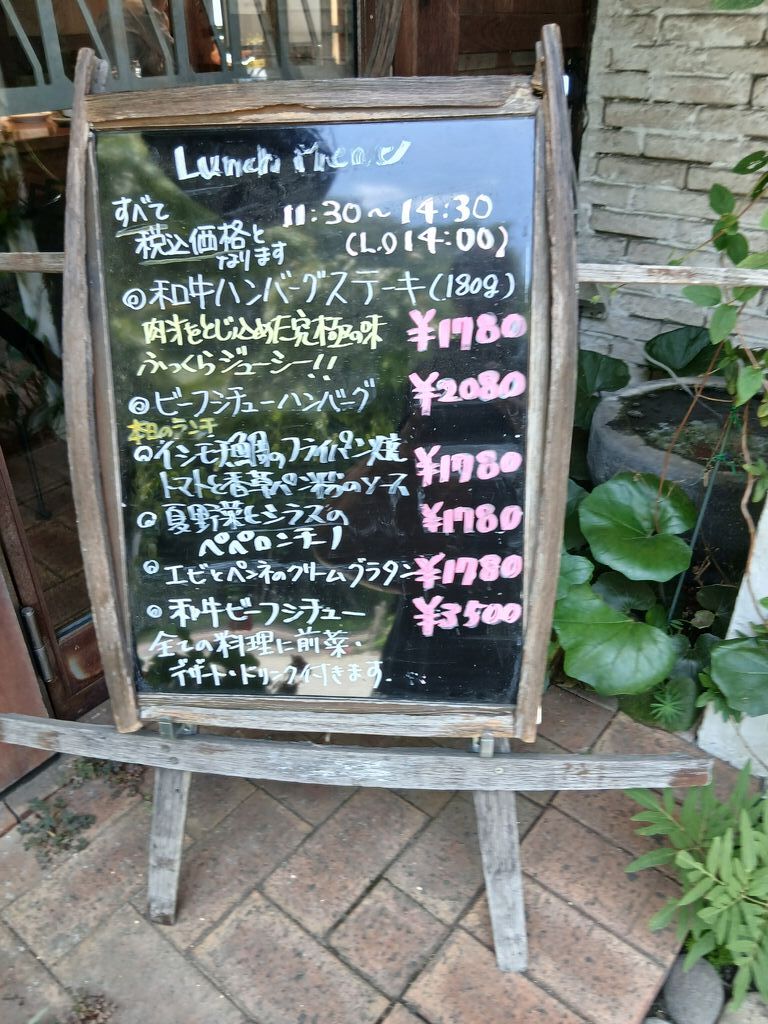 Lunch Menu
すべて 11:30～14:30
税込価格と (L.O 14:00)
なります
◎和牛ハンバーグステーキ(180g)
肉汁をとじ込めた究極の味 ¥1780
ふっくらジューシー!!
◎ビーフシチューハンバーグ ¥2080
本日のランチ
◎イシモチ鯛のフライパン焼 ¥1780
トマトと香草パン粉のソース
◎夏野菜とシラスの ¥1780
ペペロンチーノ
◎エビとペンネのクリームグラタン ¥1780
◎和牛ビーフシチュー ¥3500
全ての料理に前菜・
デザート・ドリンク付きます.